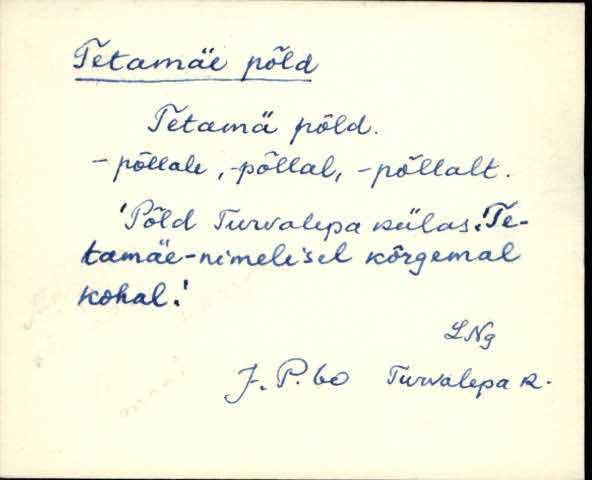 Tetamäe põld
Tetamä põld.
-põllale, -põllal, -põllalt.
'Põld Turvalepa külas. Te-
tamäe-nimelisel kõrgemal
kohal.'
LNg
J. P. 60 Turvalepa k.